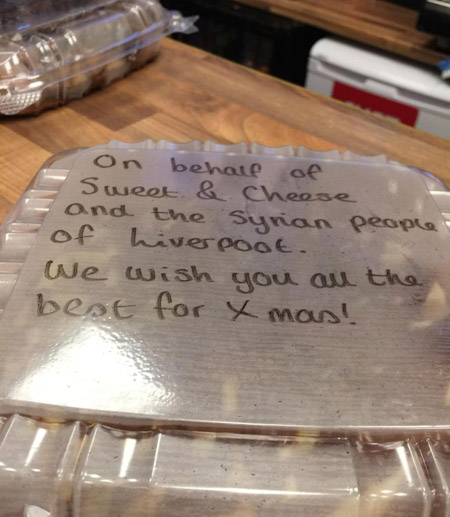 On behalf of
Sweet & Cheese
and the Syrian people
of Liverpool.
We wish you all the
best for Xmas!